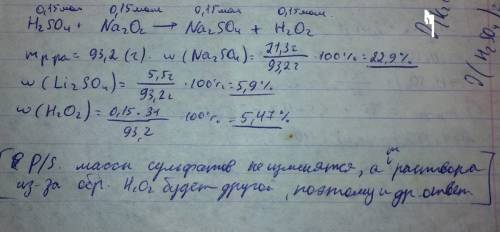 0,15мол 0,15мол 0,15мол 0,15мол
H₂SO₄ + Na₂O₂ → Na₂SO₄ + H₂O₂
m р-ра = 93,2 (г). w (Na₂SO₄) = 21,3г / 93,2г · 100% = 22,9%
w (Li₂SO₄) = 5,5г / 93,2г · 100% = 5,9%
w (H₂O₂) = 0,15 · 34 / 93,2 · 100% = 5,47%
P/S. массы сульфатов не изменятся, а m раствора
из-за обр. H₂O₂ будет другой, поэтому и др. ответ